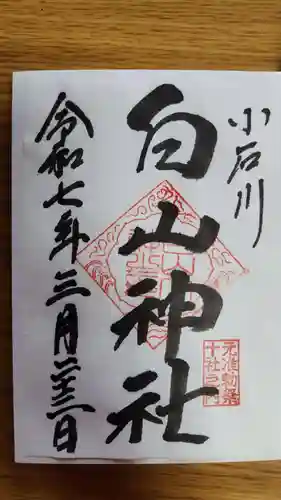 小石川
白山神社
令和七年三月二十三日
元准勅祭
十社之内